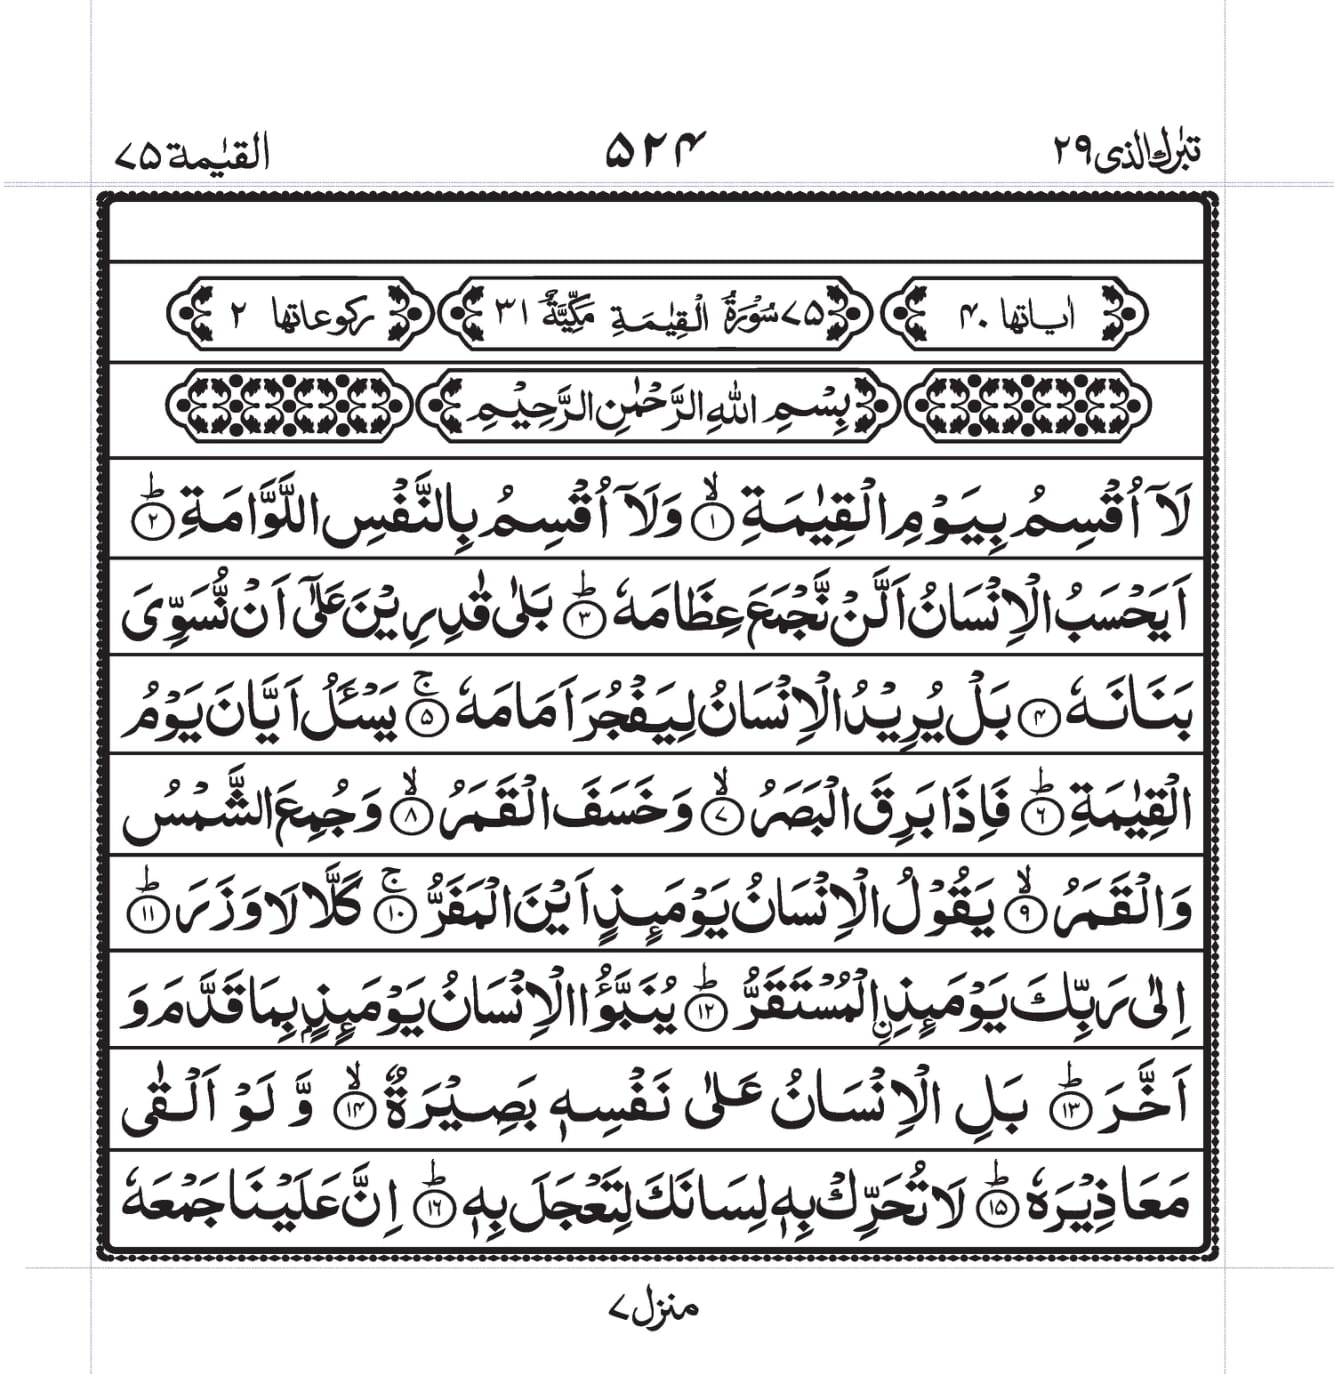 تبٰرك الذی ۲۹ ۵۲۴ القیٰمة ۷۵
اٰیاتها ۴۰ ۷۵ سُوْرَةُ الْقِیٰمَةِ مَكِّیَّةٌ ۳۱ ركوعاتها ۲
بِسْمِ اللّٰهِ الرَّحْمٰنِ الرَّحِیْمِ
لَاۤ اُقْسِمُ بِیَوْمِ الْقِیٰمَةِ ۙ‏﴿۱﴾ وَلَاۤ اُقْسِمُ بِالنَّفْسِ اللَّوَّامَةِ ؕ‏﴿۲﴾
اَیَحْسَبُ الْاِنْسَانُ اَلَّنْ نَّجْمَعَ عِظَامَهٗ ؕ‏﴿۳﴾ بَلٰی قٰدِرِیْنَ عَلٰۤی اَنْ نُّسَوِّیَ
بَنَانَهٗ ﴿۴﴾ بَلْ یُرِیْدُ الْاِنْسَانُ لِیَفْجُرَ اَمَامَهٗ ۚ‏﴿۵﴾ یَسْـَٔلُ اَیَّانَ یَوْمُ
الْقِیٰمَةِ ؕ‏﴿۶﴾ فَاِذَا بَرِقَ الْبَصَرُ ۙ‏﴿۷﴾ وَخَسَفَ الْقَمَرُ ۙ‏﴿۸﴾ وَجُمِعَ الشَّمْسُ
وَالْقَمَرُ ۙ‏﴿۹﴾ یَقُوْلُ الْاِنْسَانُ یَوْمَىِٕذٍ اَیْنَ الْمَفَرُّ ۚ‏﴿۱۰﴾ كَلَّا لَا وَزَرَ ؕ‏﴿۱۱﴾
اِلٰی رَبِّكَ یَوْمَىِٕذِ ِ۟الْمُسْتَقَرُّ ؕ‏﴿۱۲﴾ یُنَبَّؤُا الْاِنْسَانُ یَوْمَىِٕذٍۭ بِمَا قَدَّمَ وَ
اَخَّرَ ؕ‏﴿۱۳﴾ بَلِ الْاِنْسَانُ عَلٰی نَفْسِهٖ بَصِیْرَةٌ ۙ‏﴿۱۴﴾ وَّ لَوْ اَلْقٰی
مَعَاذِیْرَهٗ ؕ‏﴿۱۵﴾ لَا تُحَرِّكْ بِهٖ لِسَانَكَ لِتَعْجَلَ بِهٖ ؕ‏﴿۱۶﴾ اِنَّ عَلَیْنَا جَمْعَهٗ
منزل ۷